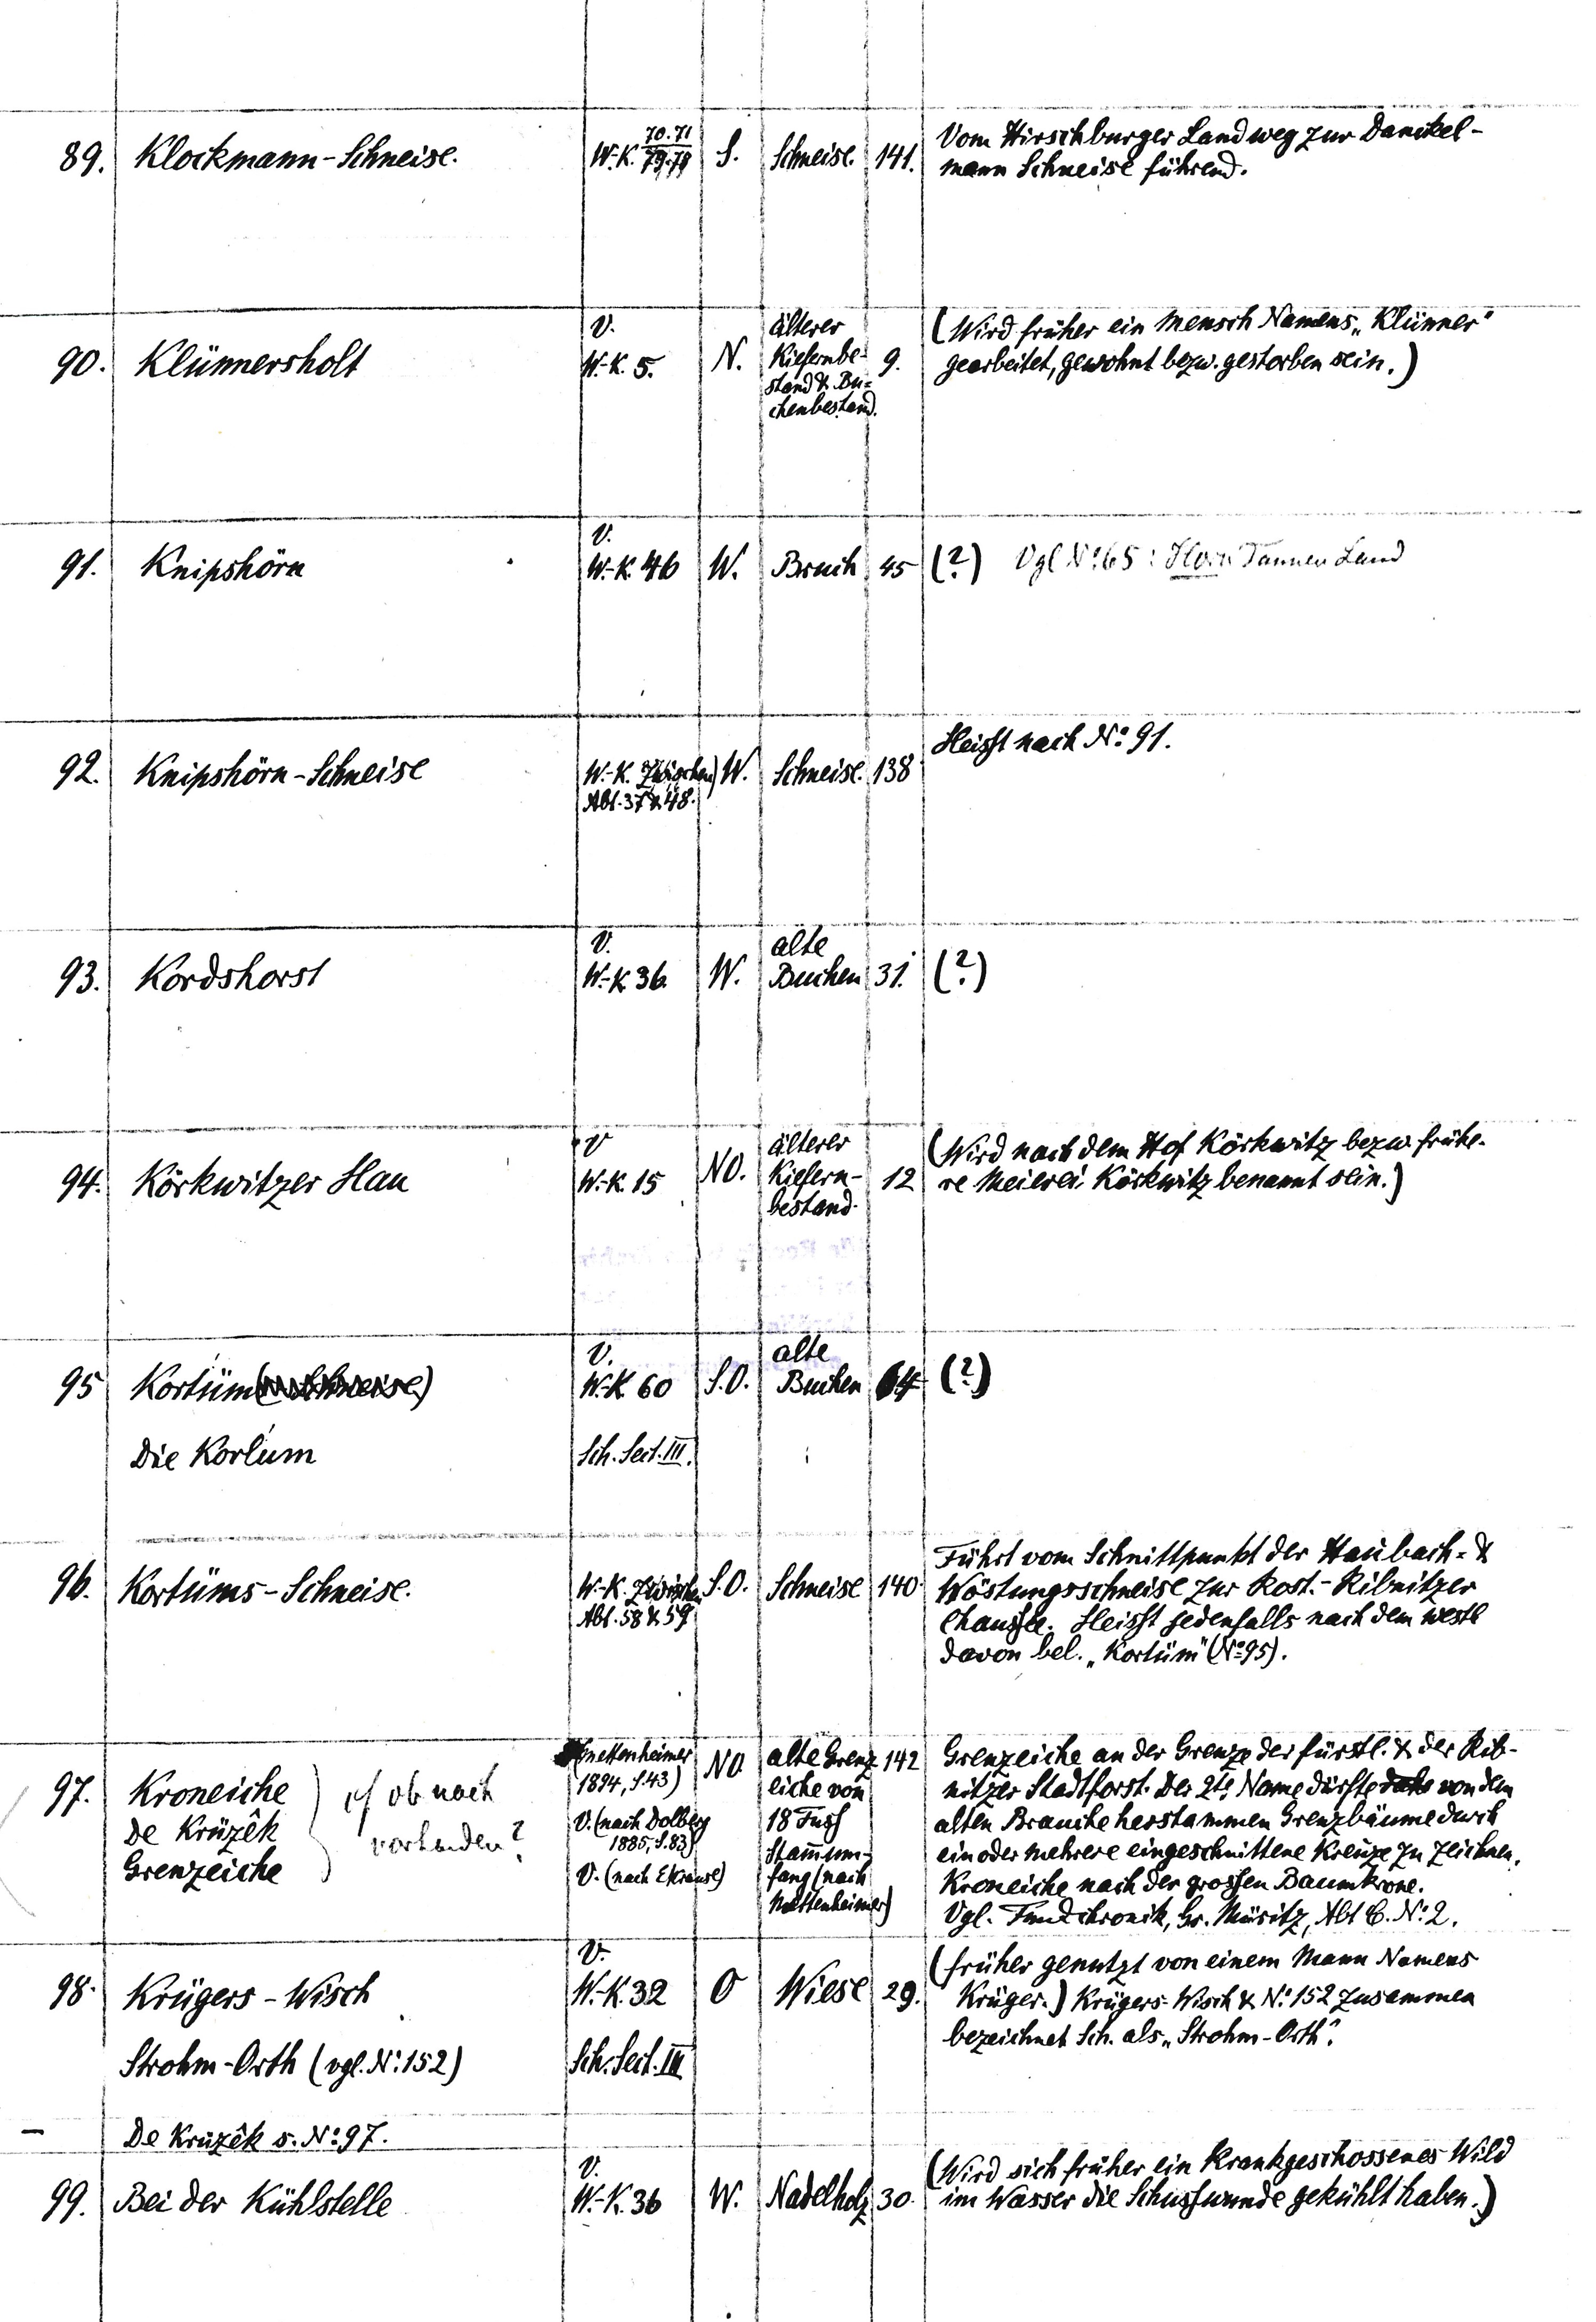 89. Klockmann-Schneise. W.-K. 70.71 S. Schneise. 141. Vom Hirschburger Landweg zur Danckel-
mann Schneise führend.
90. Klünnersholt V. W.-K. 5. N. älterer Kiefernbe- stand & Bu- chenbestand. 9. (Wird früher ein Mensch Namens „Klünner"
gearbeitet, gewohnt bezw. gestorben sein.)
91. Knipshörn V. W.-K. 46 W. Bruch 45 (?) Vgl No 65: Horn Tannen Land
92. Knipshörn-Schneise W.-K. Zwischen Abt. 37 & 48. W. Schneise. 138 Heisst nach No 91.
93. Kordshorst V. W.-K. 36. W. alte Buchen 31. (?)
94. Körkwitzer Hau V W.-K. 15 NO. älterer Kiefern- bestand. 12 (Wird nach dem Hof Körkwitz bezw. frühe-
re Meierei Körkwitz benannt sein.)
95 Kortüm V. W.-K 60 S.O. alte Buchen 64 (?)
Die Kortum Sch. Sect. III.
96. Kortüms-Schneise. W.-K. Zwischen Abt. 58 & 59 S.O. Schneise 140. Führt vom Schnittpunkt der Haubach- &
Wöstungsschneise zur Rost.-Ribnitzer
Chaussee. Heisst jedenfalls nach dem westl
davon bel. „Kortüm" (No 95).
97. Kroneiche
De Krüzêk
Grenzeiche
ob noch
vorhanden?
Mettenheimer
1894, S.43)
V. (nach Dolberg
1885, S.83)
V. (nach EKrause)
NO.
alte Grenz
eiche von
18 Fuss
Stammum-
fang (nach
Mettenheimer)
142
Grenzeiche an der Grenze der fürstl. & der Rib-
nitzer Stadtforst. Der 2te Name dürfte von dem
alten Brauche herstammen Grenzbäume durch
ein oder mehrere eingeschnittene Kreuze zu zeichnen.
Kroneiche nach der grossen Baumkrone.
Vgl. Fundchronik, Gr. Müritz, Abt C. No 2.
98. Krügers-Wisch V. W.-K. 32 O Wiese 29. (früher genutzt von einem Mann Namens
Krüger.) Krügers-Wisch & No 152 zusammen
bezeichnet Sch. als „Strohm-Orth".
Strohm-Orth (vgl. No 152) Sch. Sect. III
— De Krüzêk s. No 97.
99. Bei der Kühlstelle V. W.-K. 36 W. Nadelholz 30. (Wird sich früher ein krankgeschossenes Wild
im Wasser die Schusswunde gekühlt haben.)